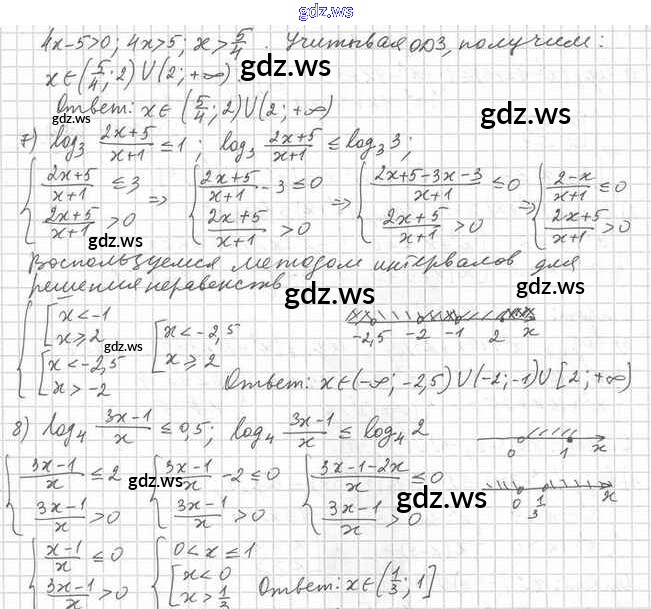 gdz.ws
4x-5>0; 4x>5; x>5/4. Учитывая ОДЗ, получим:
x∈(5/4; 2)∪(2; +∞)
gdz.ws
Ответ: x∈(5/4; 2)∪(2; +∞)
gdz.ws
gdz.ws
7) log₃ (2x+5)/(x+1) ≤ 1; log₃ (2x+5)/(x+1) ≤ log₃ 3;
{(2x+5)/(x+1) ≤ 3 ⇒ {(2x+5)/(x+1) - 3 ≤ 0 ⇒ {(2x+5-3x-3)/(x+1) ≤ 0 ⇒ {(2-x)/(x+1) ≤ 0
(2x+5)/(x+1) > 0 (2x+5)/(x+1) > 0 (2x+5)/(x+1) > 0 (2x+5)/(x+1) > 0
gdz.ws
Воспользуемся методом интервалов для
решения неравенств
gdz.ws
gdz.ws
{[x < -1
x ≥ 2
[x < -2,5
x > -2
[x < -2,5
x ≥ 2
gdz.ws
-2,5 -2 -1 2 x
Ответ: x∈(-∞; -2,5)∪(-2; -1)∪[2; +∞)
8) log₄ (3x-1)/x ≤ 0,5; log₄ (3x-1)/x ≤ log₄ 2
0 1 x
{(3x-1)/x ≤ 2 {(3x-1)/x - 2 ≤ 0 {(3x-1-2x)/x ≤ 0
(3x-1)/x > 0 (3x-1)/x > 0 (3x-1)/x > 0
gdz.ws
gdz.ws
0 1/3 x
{(x-1)/x ≤ 0 {0 < x ≤ 1
(3x-1)/x > 0 [x < 0
x > 1/3
Ответ: x∈(1/3; 1]
gdz.ws
gdz.ws